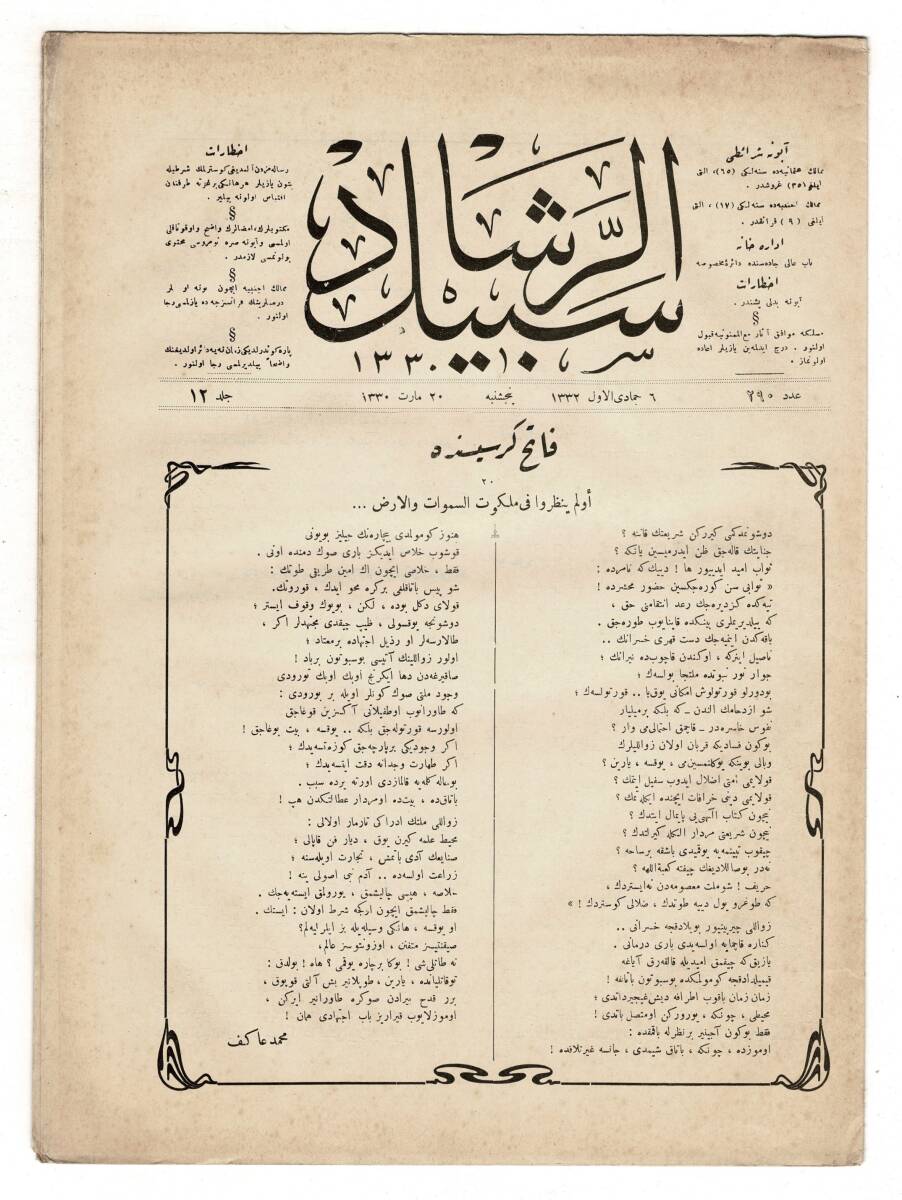 آبونه شرائطی
ممالك عثمانیه‌ده سنه‌لكی (٦٥)، التی
آیلغی (٣٥) غروشدر .
ممالك اجنبیه‌ده سنه‌لكی (١٧) ، التی
آیلغی ( ٩ ) فرانقدر .
اداره خانه
باب عالی جاده‌سنده دائرهٔ مخصوصه
اخطارات
آبونه بدلی پشیندر .
§
مسلكه موافق آثار مع‌الممنونیه قبول
اولنور . درج ایدلمه‌ین یازیلر اعاده
اولونماز .
سبیل الرشاد
١٣٣٠
اخطارات
رساله‌مزدن آلندیغی كوسترلمك شرطیله
بتون یازیلر هر هانكی بر غزته طرفندن
اقتباس اولونه بیلیر .
§
مكتوبلرك، امضالرك واضح واوقوناقلی
اولمسی وآبونه صره نومروسی محتوی
بولونمسی لازمدر .
§
ممالك اجنبیه ایچون آبونه اولانلر
درسلرینك فرانسزجه‌ده یازلمسی رجا
اولنور .
§
پاره كوندرلدیكی زمان نه‌یه دائر اولدیغنك
واضحاً بیلدیرلمسی رجا اولنور .
عدد ٢٩٠
٦ جمادی الاول ١٣٣٢
پنجشنبه
٢٠ مارت ١٣٣٠
جلد ١٢
فاتح كرسیسنده
٢٠
أولم ینظروا فی ملكوت السموات والارض ...
دوشونمدكمی كیرركن شریعتك قاننه ؟
جنایتك قاله‌جق ظن ایدرمیسین یانكه ؟
ثواب امید ایدییور ها ! دییك كه نامرده :
« ثوابی سن كوره‌جكسین حضور محشرده !
تپه‌كده كزدیره‌جك رعد انتقامنی حق ،
كه ییلدیریملری بیننكده قاینایوب طوره‌جق .
یاقه‌كدن اینمیه‌جك دست قهری خسرانك ..
ناصیل ایتركه ، اوكندن قاچوب‌ده نیرانك ؛
جوار نور نبوتده ملتجا بولسه‌ك ؛
بودورلو قورتولوش امكانی یوق یا .. قورتولسه‌ك ؛
شو ازدحامك الندن ــ كه بلكه بر میلیار
نفوس خاسره‌در ــ قاچمق احتمالی‌می وار ؟
بوكون فسادیكه قربان اولان زواللیلرك
وبالی بوینكه یوكلنمسین‌می ، یوقسه ، یارین ؟
قولایمی امتی اضلال ایدوب سفیل ایتمك ؟
قولایمی دینی خرافات ایچنده ایكله‌تمك ؟
نیچون كتاب الهی‌یی پایمال ایتدك ؟
نیچون شریعتی مردار الكله كیرلتدك ؟
چیقوب تپینمه‌یه یوقمیدی باشقه بر ساحه ؟
نه‌در بوصاللادیغك چیفته كعبة‌اللهه ؟
حریف ! شو ملت معصومه‌دن نه‌ایستردك ،
كه طوغرو یول دییه طوتدك ، ضلالی كوستردك ! »
زواللی چیرپینیور بویلادقجه خسرانی ..
كناره قاچمایه اولسه‌یدی باری درمانی .
یازیق كه چیقمق امیدیله قالقه‌رق آیاغه
قیمیلدادقجه كومولمكده بوسبوتون باتاغه !
زمان زمان باقوب اطرافه دیش غیجیرداتدی ؛
محیطی ، چونكه ، یوروركن اومتصل باتدی !
فقط بوكون آجینیر بر نظرله باقمقده :
اوموزده ، چونكه ، باتاق شیمدی ، جانسه غیرتلاقده !
هنوز كومولمدی بیچاره‌نك جیلیز بویونی
قوشوب خلاص ایدیكز باری صوك دمنده اونی .
فقط ، خلاصی ایچون اك امین طریقی طوتك :
شو پیس باتاقلغی بركره محو ایدك ، قوروتك.
قولای دكل بوده ، لكن ، بویوك وقوف ایستر ؛
دوشونجه یوقسولی ، ظلیپ چیقدی مجتهدلر اكر ،
طالارسه‌لر او رذیل اجتهاده برمعتاد ؛
اولور زواللینك آتیسی بوسبوتون برباد !
صاقیرغه‌دن دها ایكرنج اوبك اوبك تورودی
وجود ملتی صوك كونلر اویله بر بورودی :
كه طاورانوب اوطفیلاتی آكسزین قوغاجق
اولورسه قورتوله‌جق بلكه .. یوقسه ، بیت بوغاجق !
اكر وجودیكی برپارچه‌جق كوزه‌تسه‌یدك ؛
اكر طهارت وجدانه دقت ایتسه‌یدك ؛
بو ساله كلمه‌یه قالمازدی اورته یرده سبب .
باتاق‌ده ، بیت‌ده اومردار عطالتكدن هپ !
زواللی ملتك ادراكی تارمار اولالی :
محیط علمه كیرن یوق ، دیار فن قاپالی ؛
صنایعك آدی باتمش ، تجارت اویله‌سنه ؛
زراعت اولسه‌ده .. آدم نبی اصولی ینه !
خلاصه ، هپسی چالیشمق ، یورولمق ایسته‌یه‌جك .
فقط چالیشمق ایچون اركجه شرط اولان : ایستك .
او یوقسه ، هانكی وسیله‌یله بز ایلرایه‌لم؟
صیقنتیسز متفنن ، اوزونتوسز عالم،
نه طاتلی شی ! بوكا برچاره یوقمی ؟ هاه ! بولدق :
توقاتلیانده ، یارین ، طوپلانیر بش آلتی قوپوق ،
برر قدح بیرادن صوكره طاورانیر ایركن ،
اوموزلایوب قیراریز باب اجتهادی همان !
محمد عاكف